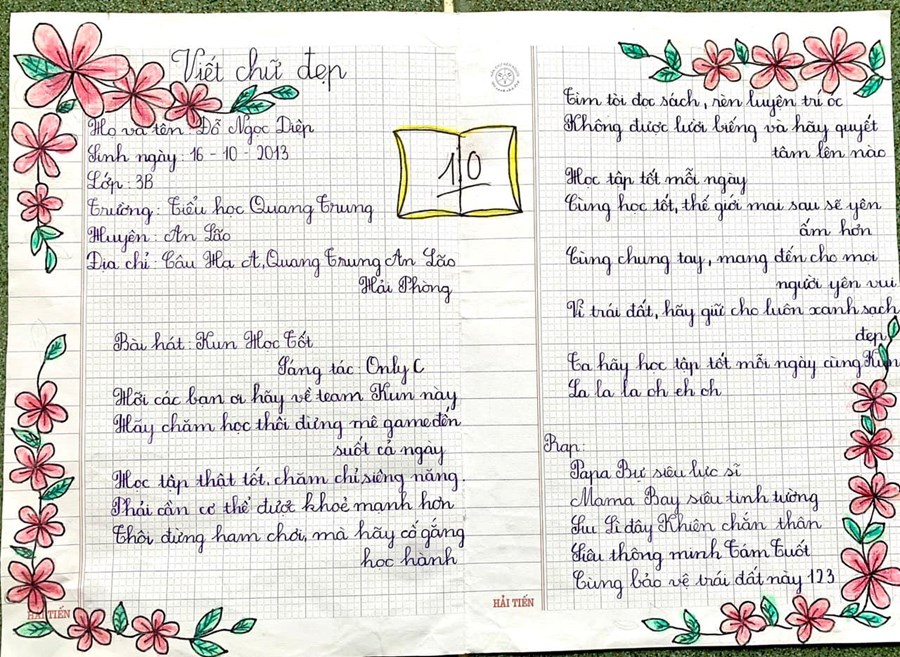 Viết chữ đẹp
Họ và tên: Đỗ Ngọc Diệp
Sinh ngày: 16 - 10 - 2013
Lớp: 3B
Trường: Tiểu học Quang Trung
Huyện: An Lão
Địa chỉ: Câu Hạ A, Quang Trung An Lão
Hải Phòng
10
Bài hát: Kun Học Tốt
Sáng tác: Only C
Hỡi các bạn ơi hãy về team Kun này,
Hãy chăm học thôi đừng mê game đến
suốt cả ngày
Học tập thật tốt, chăm chỉ siêng năng.
Phải cần cơ thể được khoẻ mạnh hơn
Thôi đừng ham chơi, mà hãy cố gắng
học hành
HẢI TIẾN
Tìm tòi đọc sách, rèn luyện trí óc
Không được lười biếng và hãy quyết
tâm lên nào
Học tập tốt mỗi ngày
Cùng học tốt, thế giới mai sau sẽ yên
ấm hơn
Cùng chung tay, mang đến cho mọi
người yên vui
Vì trái đất, hãy giữ cho luôn xanh sạch
đẹp
Ta hãy học tập tốt mỗi ngày cùng Kun
La la la oh eh oh
Rap:
Papa Bự siêu lực sĩ
Mama Bay siêu tinh tường
Su Si dây Khiên chắn thân
Siêu thông minh Tám Tuốt
Cùng bảo vệ trái đất này 123
HẢI TIẾN